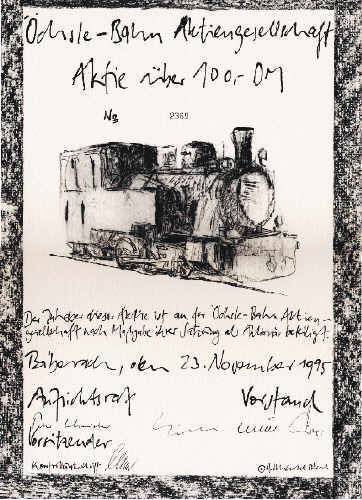 Öchsle-Bahn Aktiengesellschaft
Aktie über 100,- DM
No 2369
Der Inhaber dieser Aktie ist an der Öchsle-Bahn Aktien-
gesellschaft nach Maßgabe ihrer Satzung als Aktionär beteiligt.
Biberach, den 23. November 1995
Aufsichtsrat Vorstand
Vorsitzender
Kontrollunterschrift